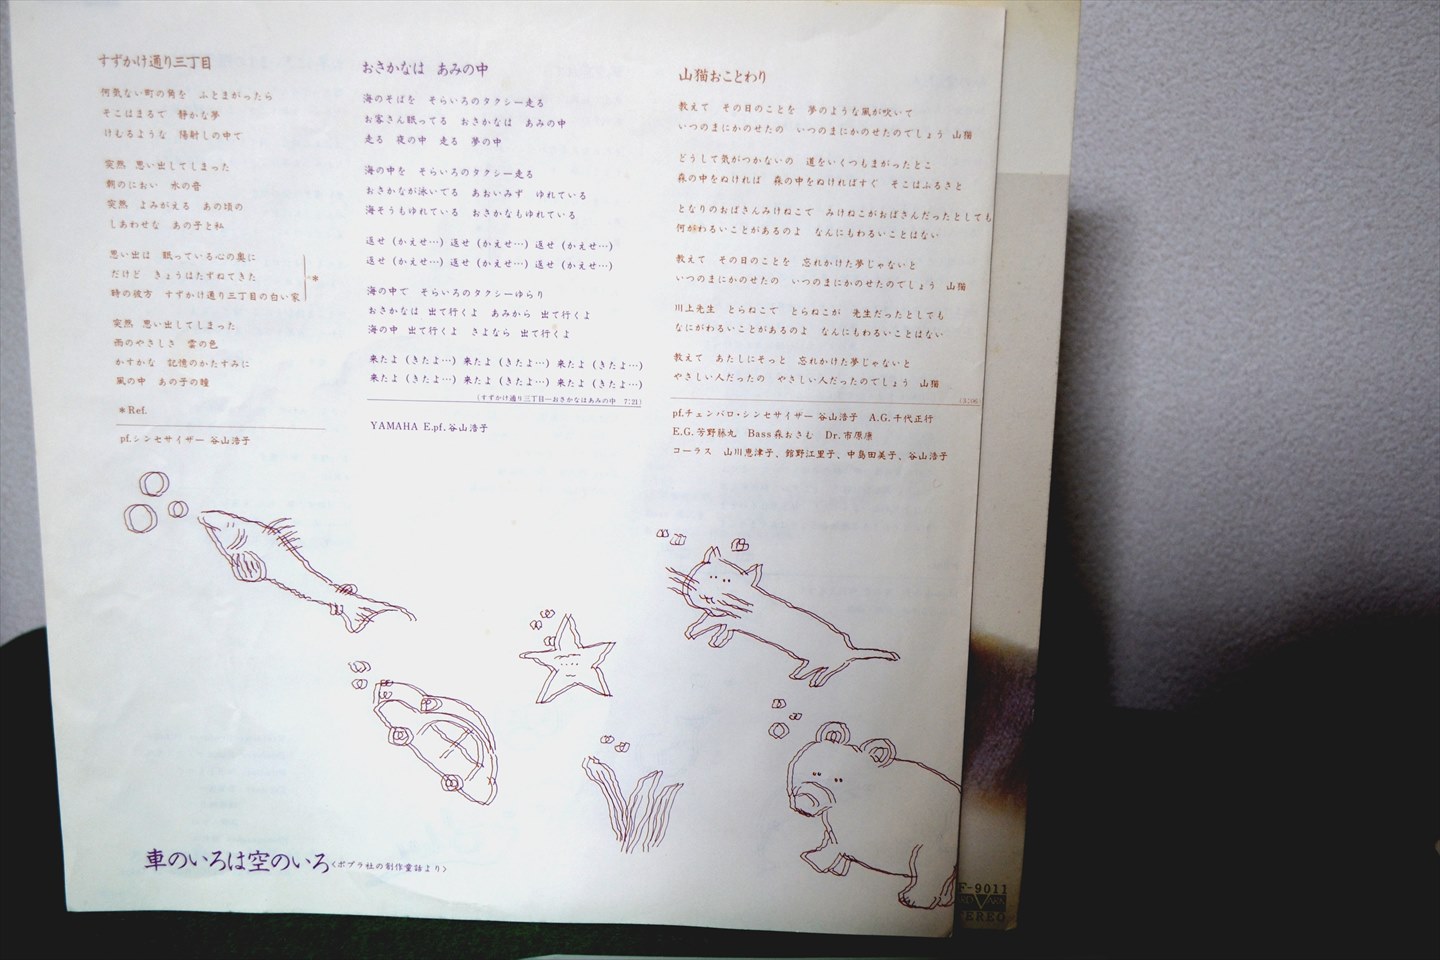 すずかけ通り三丁目
何気ない町の角を　ふとまがったら
そこはまるで　静かな夢
けむるような　陽射しの中で
突然　思い出してしまった
朝のにおい　水の音
突然　よみがえる　あの頃の
しあわせな　あの子と私
思い出は　眠っている心の奥に
だけど　きょうはたずねてきた
時の彼方　すずかけ通り三丁目の白い家
*
突然　思い出してしまった
雨のやさしさ　雲の色
かすかな　記憶のかたすみに
風の中　あの子の瞳
*Ref.
pf.シンセサイザー 谷山浩子
おさかなは　あみの中
海のそばを　そらいろのタクシー走る
お客さん眠ってる　おさかなは　あみの中
走る　夜の中　走る　夢の中
海の中を　そらいろのタクシー走る
おさかなが泳いでる　あおいみず　ゆれている
海そうもゆれている　おさかなもゆれている
返せ（かえせ…）返せ（かえせ…）返せ（かえせ…）
返せ（かえせ…）返せ（かえせ…）返せ（かえせ…）
海の中で　そらいろのタクシーゆらり
おさかなは　出て行くよ　あみから　出て行くよ
海の中　出て行くよ　さよなら　出て行くよ
来たよ（きたよ…）来たよ（きたよ…）来たよ（きたよ…）
来たよ（きたよ…）来たよ（きたよ…）来たよ（きたよ…）
（すずかけ通り三丁目―おさかなはあみの中　7:21）
YAMAHA E.pf.谷山浩子
山猫おことわり
教えて　その日のことを　夢のような風が吹いて
いつのまにかのせたの　いつのまにかのせたのでしょう　山猫
どうして気がつかないの　道をいくつもまがったとこ
森の中をぬければ　森の中をぬければすぐ　そこはふるさと
となりのおばさんみけねこで　みけねこがおばさんだったとしても
何がわるいことがあるのよ　なんにもわるいことはない
教えて　その日のことを　忘れかけた夢じゃないと
いつのまにかのせたの　いつのまにかのせたのでしょう　山猫
川上先生　とらねこで　とらねこが　先生だったとしても
なにがわるいことがあるのよ　なんにもわるいことはない
教えて　あたしにそっと　忘れかけた夢じゃないと
やさしい人だったの　やさしい人だったのでしょう　山猫
pf.チェンバロ・シンセサイザー 谷山浩子　A.G.千代正行
E.G.芳野藤丸　Bass森おさむ　Dr.市原康
コーラス　山川恵津子、舘野江里子、中島田美子、谷山浩子
車のいろは空のいろ〈ポプラ社の創作童話より〉
F-9011